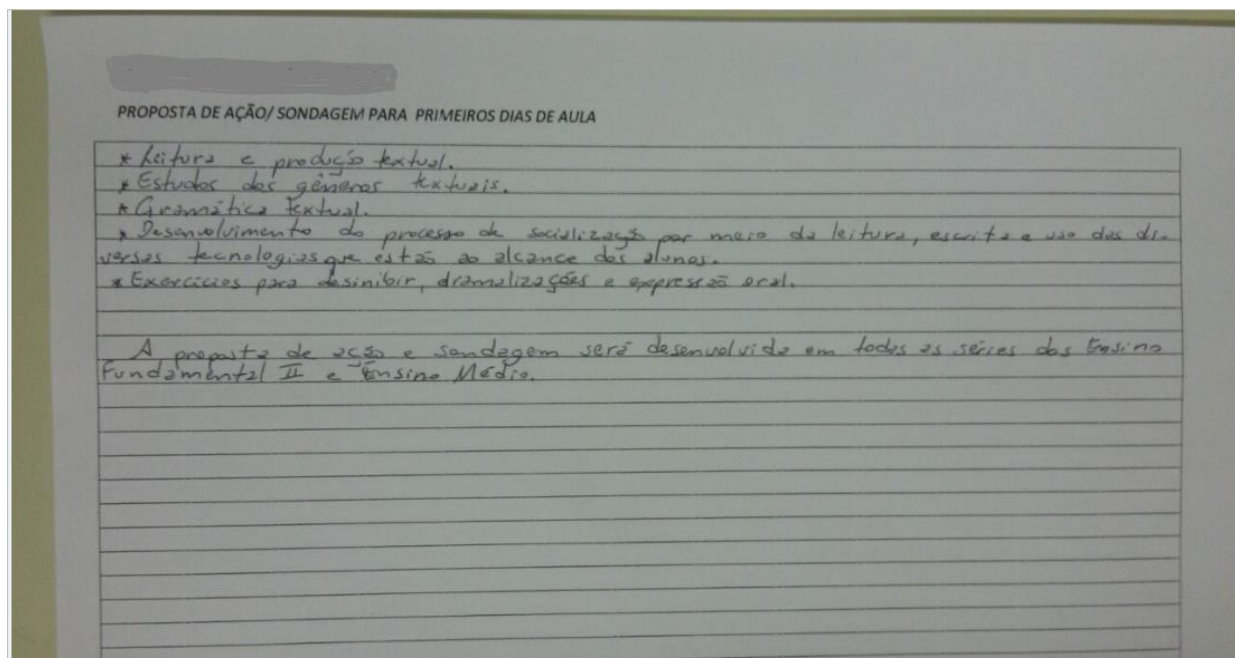 PROPOSTA DE AÇÃO/ SONDAGEM PARA PRIMEIROS DIAS DE AULA
* Leitura e produção textual.
* Estudos dos gêneros textuais.
* Gramática textual.
* Desenvolvimento do processo de socialização por meio da leitura, escrita e uso das di-
versas tecnologias que estão ao alcance dos alunos.
* Exercícios para desinibir, dramatizações e expressão oral.
A proposta de ação e sondagem será desenvolvida em todas as séries dos Ensino
Fundamental II e Ensino Médio.